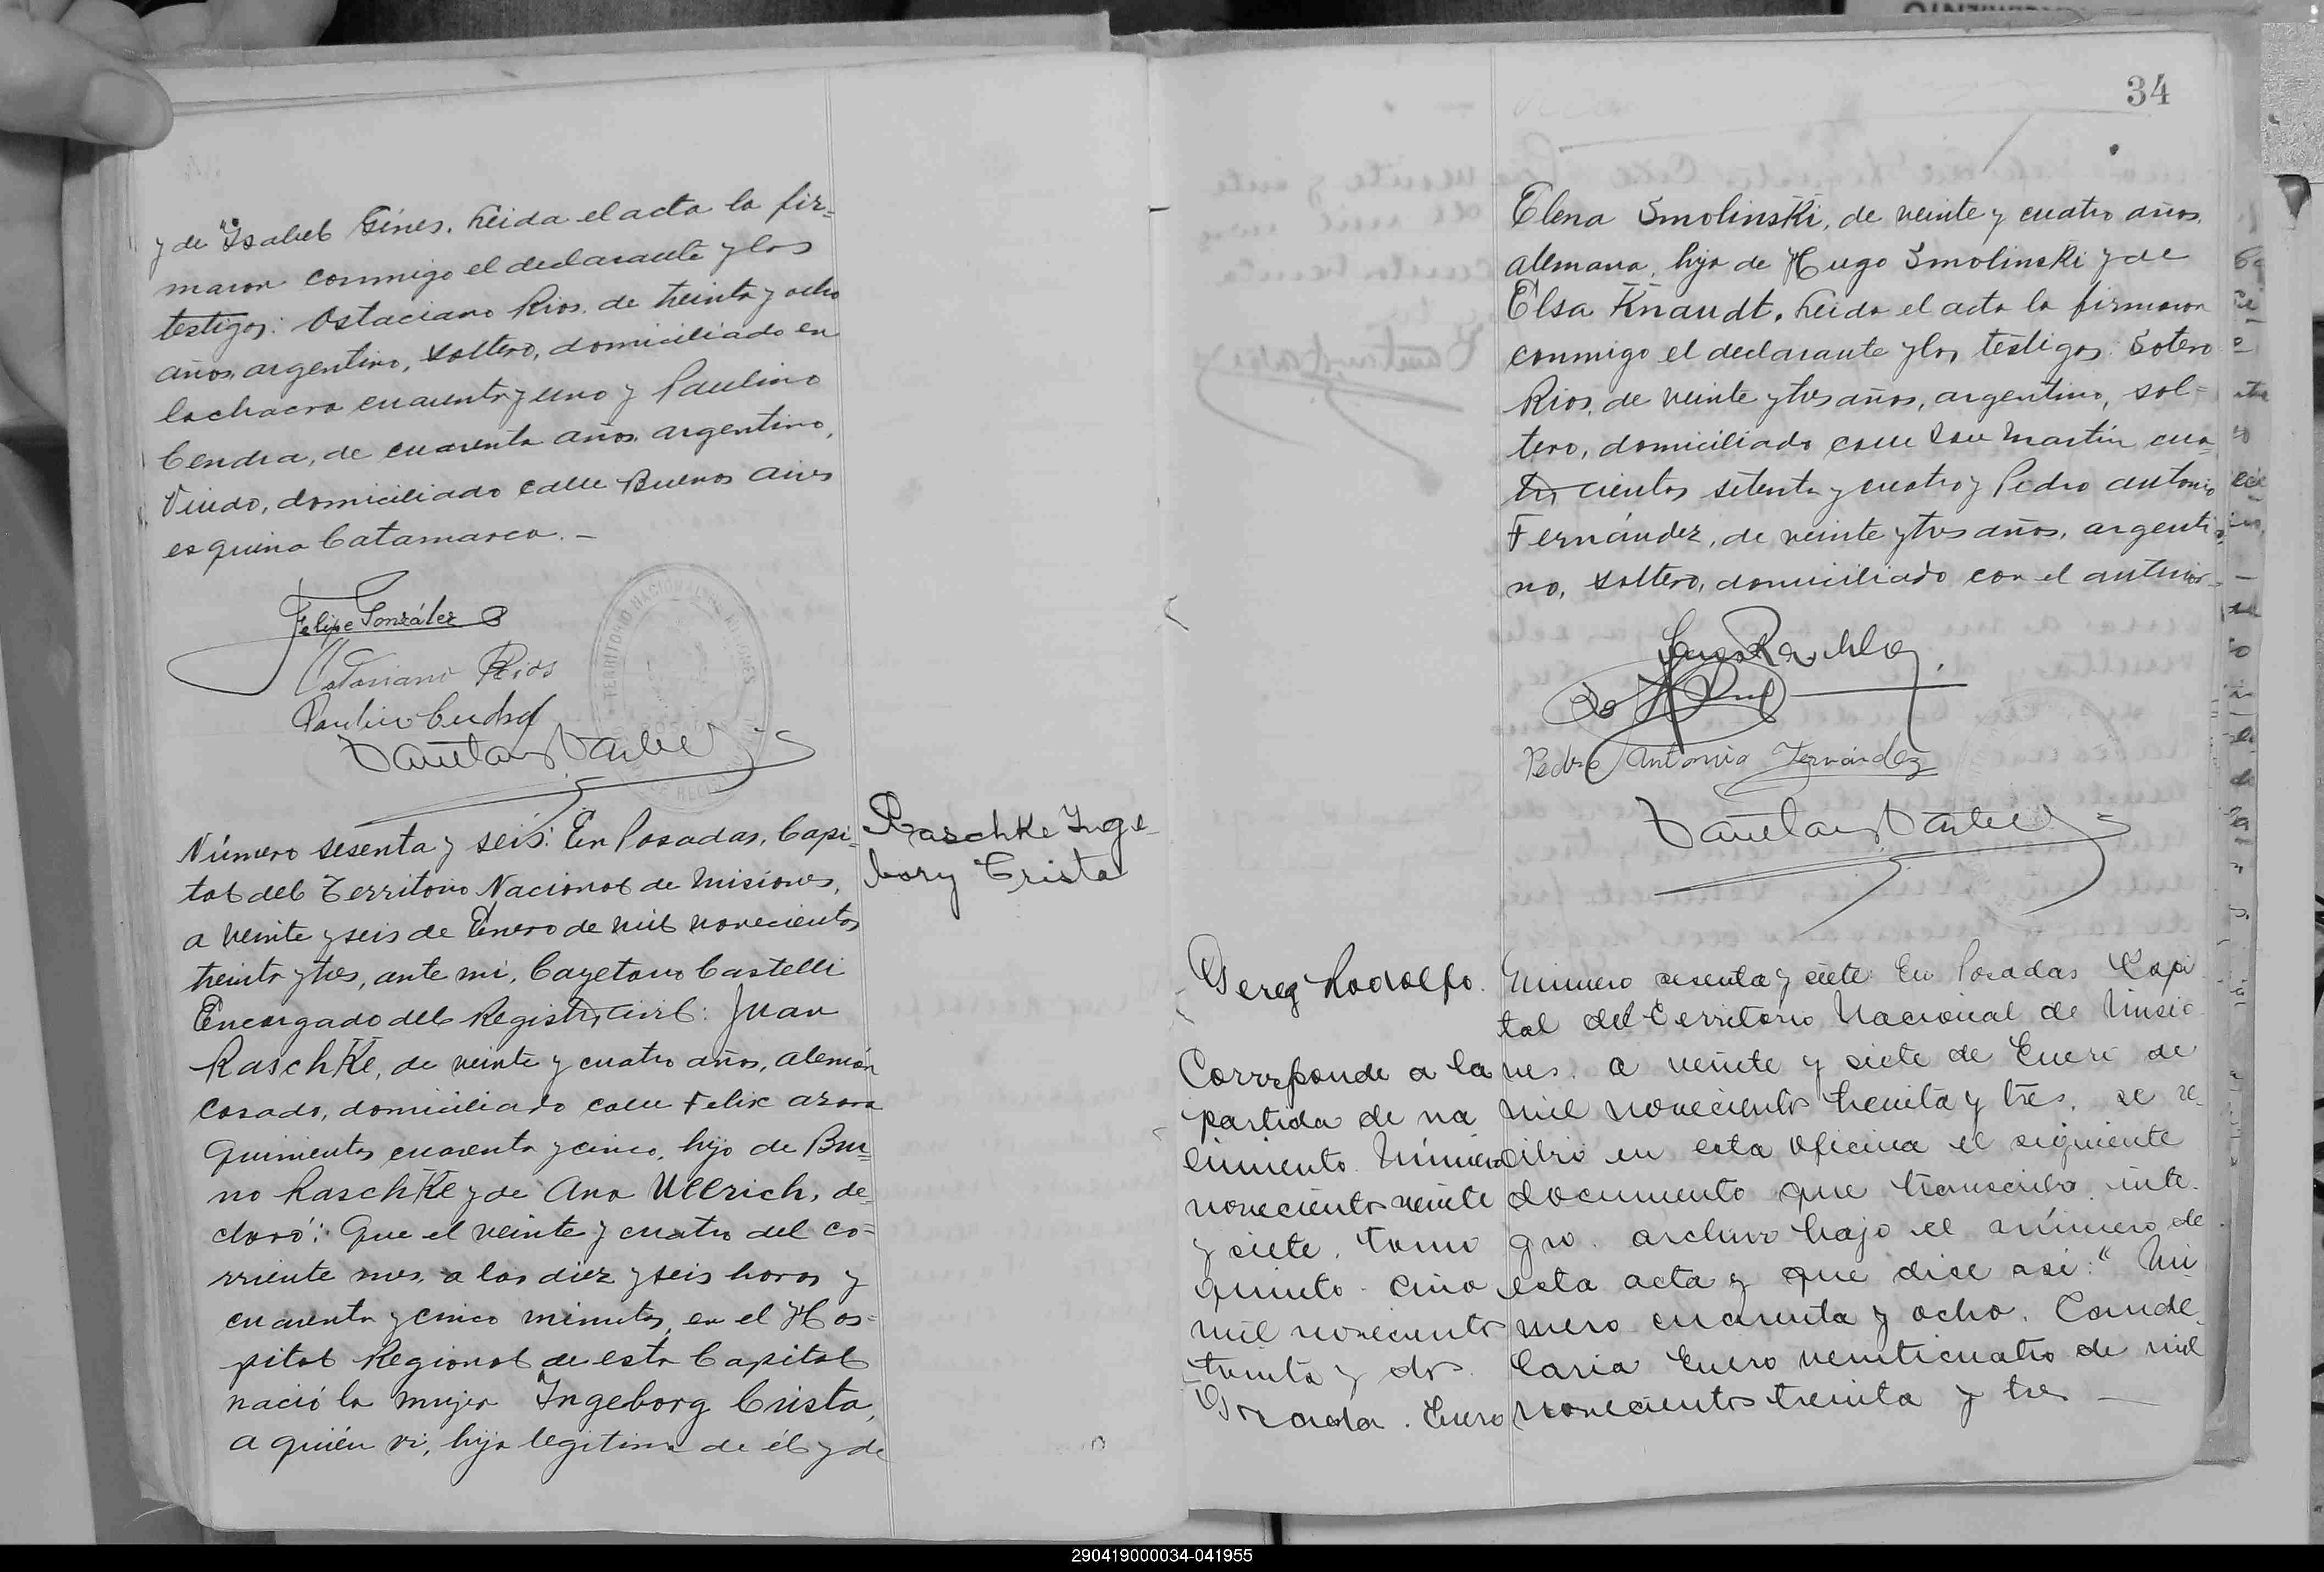 y de Isabel Gines. Leida el acta la fir=
maron conmigo el declarante y los
testigos: Ostaciano Rios, de treinta y ocho
años, argentino, soltero, domiciliado en
la chacra cuarenta y uno y Paulino
Cendra, de cuarenta años, argentino,
Viudo, domiciliado calle Buenos Aires
esquina Catamarca. –
Felipe González
Ostaciano Rios
Paulino Cendra
TERRITORIO NACIONAL DE MISIONES
Número sesenta y seis: En Posadas, Capi-
tal del Territorio Nacional de Misiones,
a veinte y seis de Enero de mil novecientos
treinta y tres, ante mi, Cayetano Castelli
Encargado del Registro Civil: Juan
Raschke, de veinte y cuatro años, alemán
casado, domiciliado calle Felix Azara
quinientos cuarenta y cinco, hijo de Bru=
no Raschke y de Ana Ullrich, de-
claró: Que el veinte y cuatro del co=
rriente mes, a las diez y seis horas y
cuarenta y cinco minutos, en el Hos=
pital Regional de esta Capital
nació la mujer Ingeborg Crista,
a quién vi, hija legitima de él y de
Raschke Inge-
borg Crista
34
Elena Smolinski, de veinte y cuatro años,
alemana, hija de Hugo Smolinski y de
Elsa Knaudt. Leida el acta la firmaron
conmigo el declarante y los testigos: Sotero
Rios, de veinte y tres años, argentino, sol=
tero, domiciliado calle San Martín cua
tro cientos setenta y cuatro y Pedro Antonio
Fernández, de veinte y tres años, argenti
no, soltero, domiciliado con el anterior-
Pedro Antonio Fernández
Perez Rodolfo.
Corresponde a la
partida de na
cimiento Número
novecientos veinte
y siete, tomo
quinto. año
mil novecientos
treinta y dos.
Posadas. Enero
Número sesenta y siete: En Posadas Capi
tal del Territorio Nacional de Misio
nes. a veinte y siete de Enero de
mil novecientos treinta y tres, se re-
cibió en esta Oficina el siguiente
documento que transcribo inte-
gro. archivo bajo el número de
esta acta y que dise asi: "Nú
mero cuarenta y ocho. Cande
laria Enero veinticuatro de mil
novecientos treinta y tres —
290419000034-041955